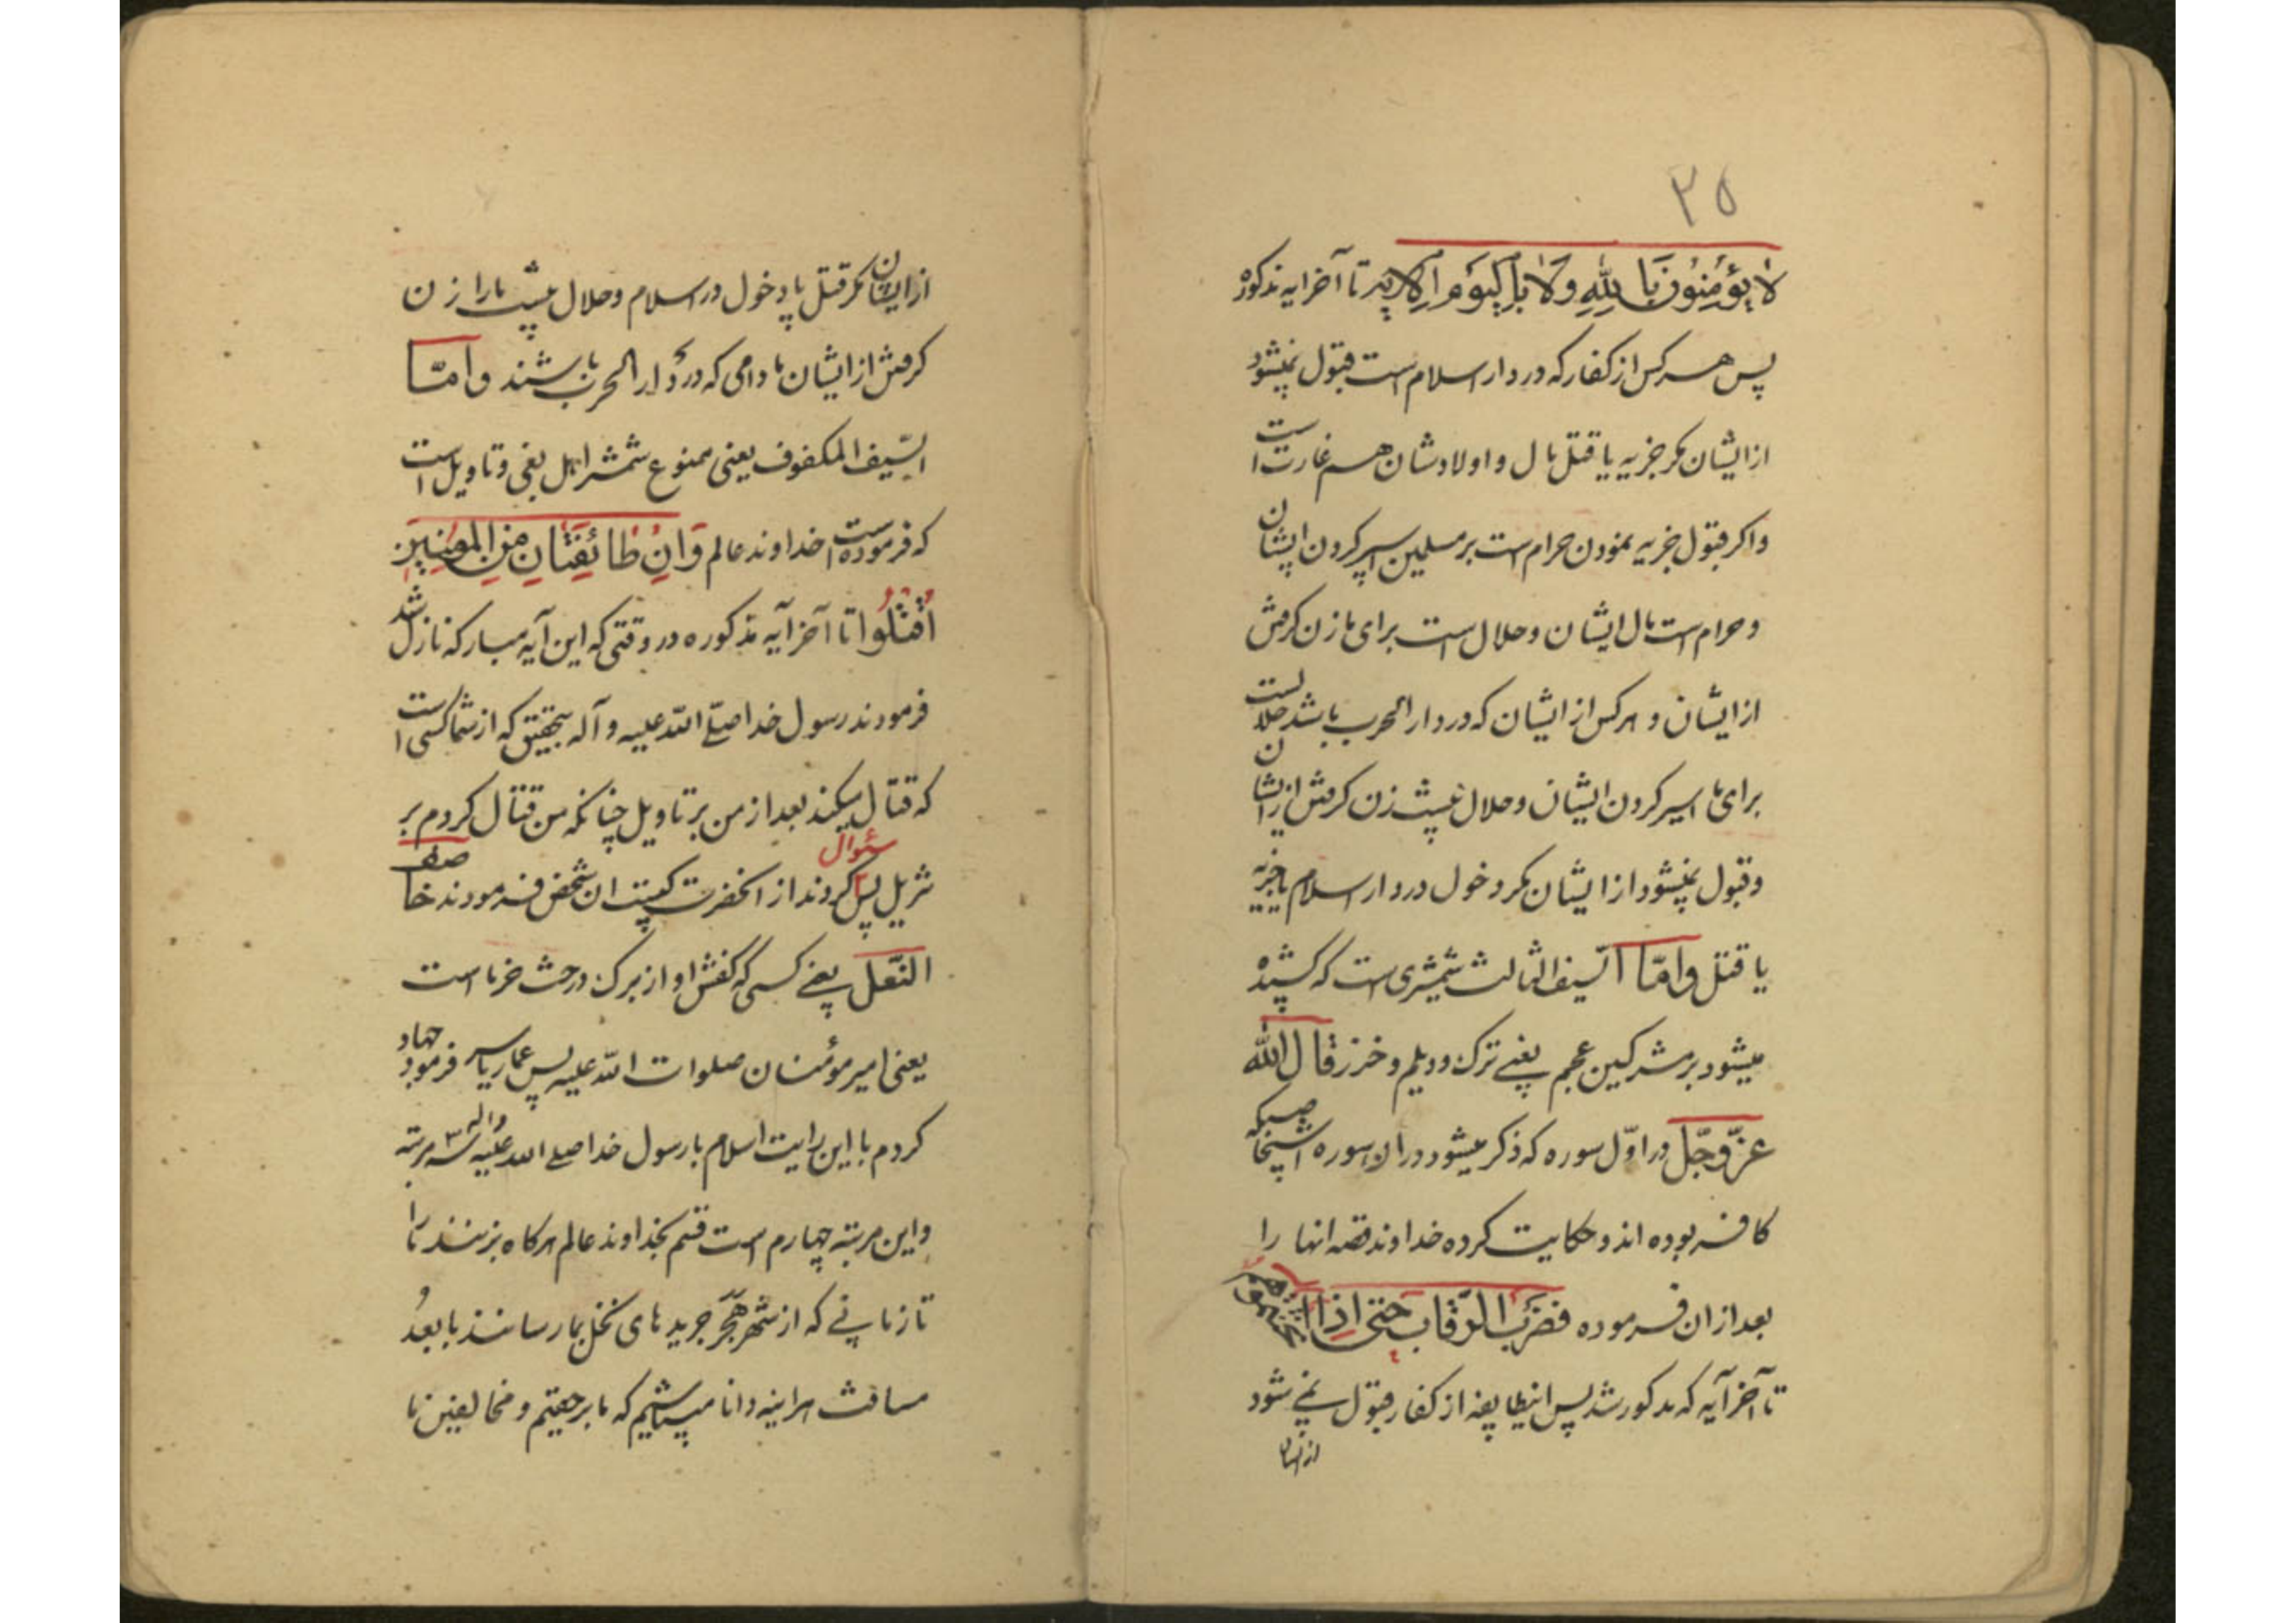 ۲۵
لا یؤمنون بالله ولا بالیوم الاخر تا آخر ایه مذکوره
پس هر کس از کفار که در دار اسلام است قبول نمیشود
از ایشان مکر جزیه یا قتل مال و اولادشان هم غارت است
واکر قبول جزیه نمودن حرام است بر مسلمین اسیر کردن ایشان
و حرام است مال ایشان و حلال است برای ما زن کرفتن
از ایشان و هر کس از ایشان که در دار الحرب باشد حلالست
برای ما اسیر کردن ایشان و حلال نیست زن کرفتن از ایشان
و قبول نمیشود از ایشان مکر دخول در دار اسلام یا جزیه
یا قتل وامّا السّیف الثالث شمشیری است که کشیده
میشود بر مشرکین عجم یعنی ترک و دیلم و خزر قال الله
عزّ وجلّ در اوّل سوره که ذکر میشود در ان سوره اشخاصیکه
کافر بوده اند و حکایت کرده خداوند قصه انها را
بعد از ان فرموده فضرب الرّقاب حتی اذا اثخنتموهم
تا آخر آیه که مذکور شد پس اینطایفه از کفار قبول نمی شود
از ایشان
از ایشان مکر قتل یا دخول در اسلام و حلال نیست ما را زن
کرفتن از ایشان مادامی که در دار الحرب باشند وامّا
السّیف المکفوف یعنی ممنوع شمشیر اهل بغی و تاویل است
که فرموده است خداوند عالم وان طائفتان من المومنین
اقتتلوا تا آخر آیه مذکوره در وقتی که این آیه مبارکه نازل شد
فرمودند رسول خدا صلّی اللّه علیه و آله بتحقیق که از شما کسی است
که قتال میکند بعد از من بر تاویل چنانکه من قتال کردم بر
تنزیل پس سئوال کردند از انحضرت کیست ان شخص فرمودند خاصف
النّعل یعنی کسی که کفش او از برک درخت خرما است
یعنی امیر مؤمنان صلوات اللّه علیه پس عمار یاسر فرمود جهاد
کردم با این رایت اسلام با رسول خدا صلی الله علیه واله سه مرتبه
و این مرتبه چهارم است قسم بخداوند عالم هرکاه بزنند ما را
تا زمانی که از شهر هَجَر جرید های نخل بما رسانند با بعد
مسافت هراینه دانا میباشیم که ما بر حقیم و مخالفین ما